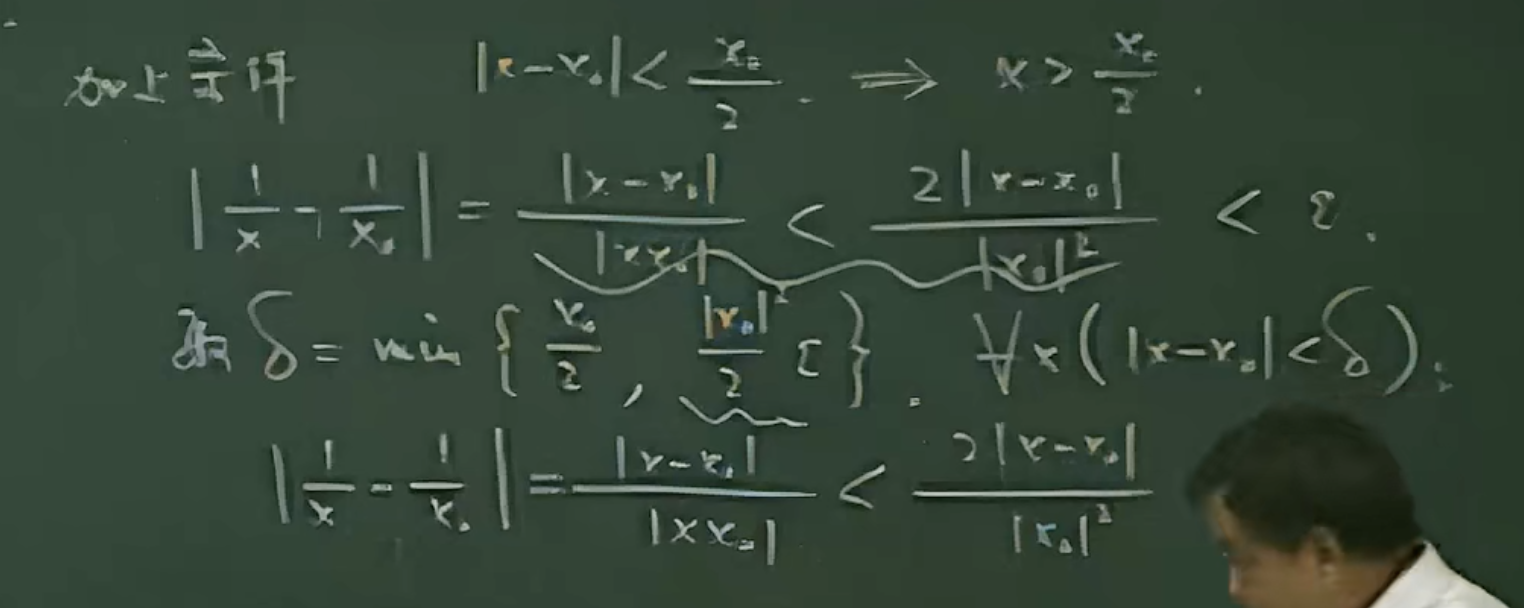 加上条件 |x-x₀| < x₀/2 . ⟹ x > x₀/2 .
|1/x - 1/x₀| = |x-x₀|/|xx₀| < 2|x-x₀|/|x₀|² < ε.
取 δ = min { x₀/2 , |x₀|²/2 ε } . ∀x ( |x-x₀| < δ ) :
|1/x - 1/x₀| = |x-x₀|/|xx₀| < 2|x-x₀|/|x₀|²